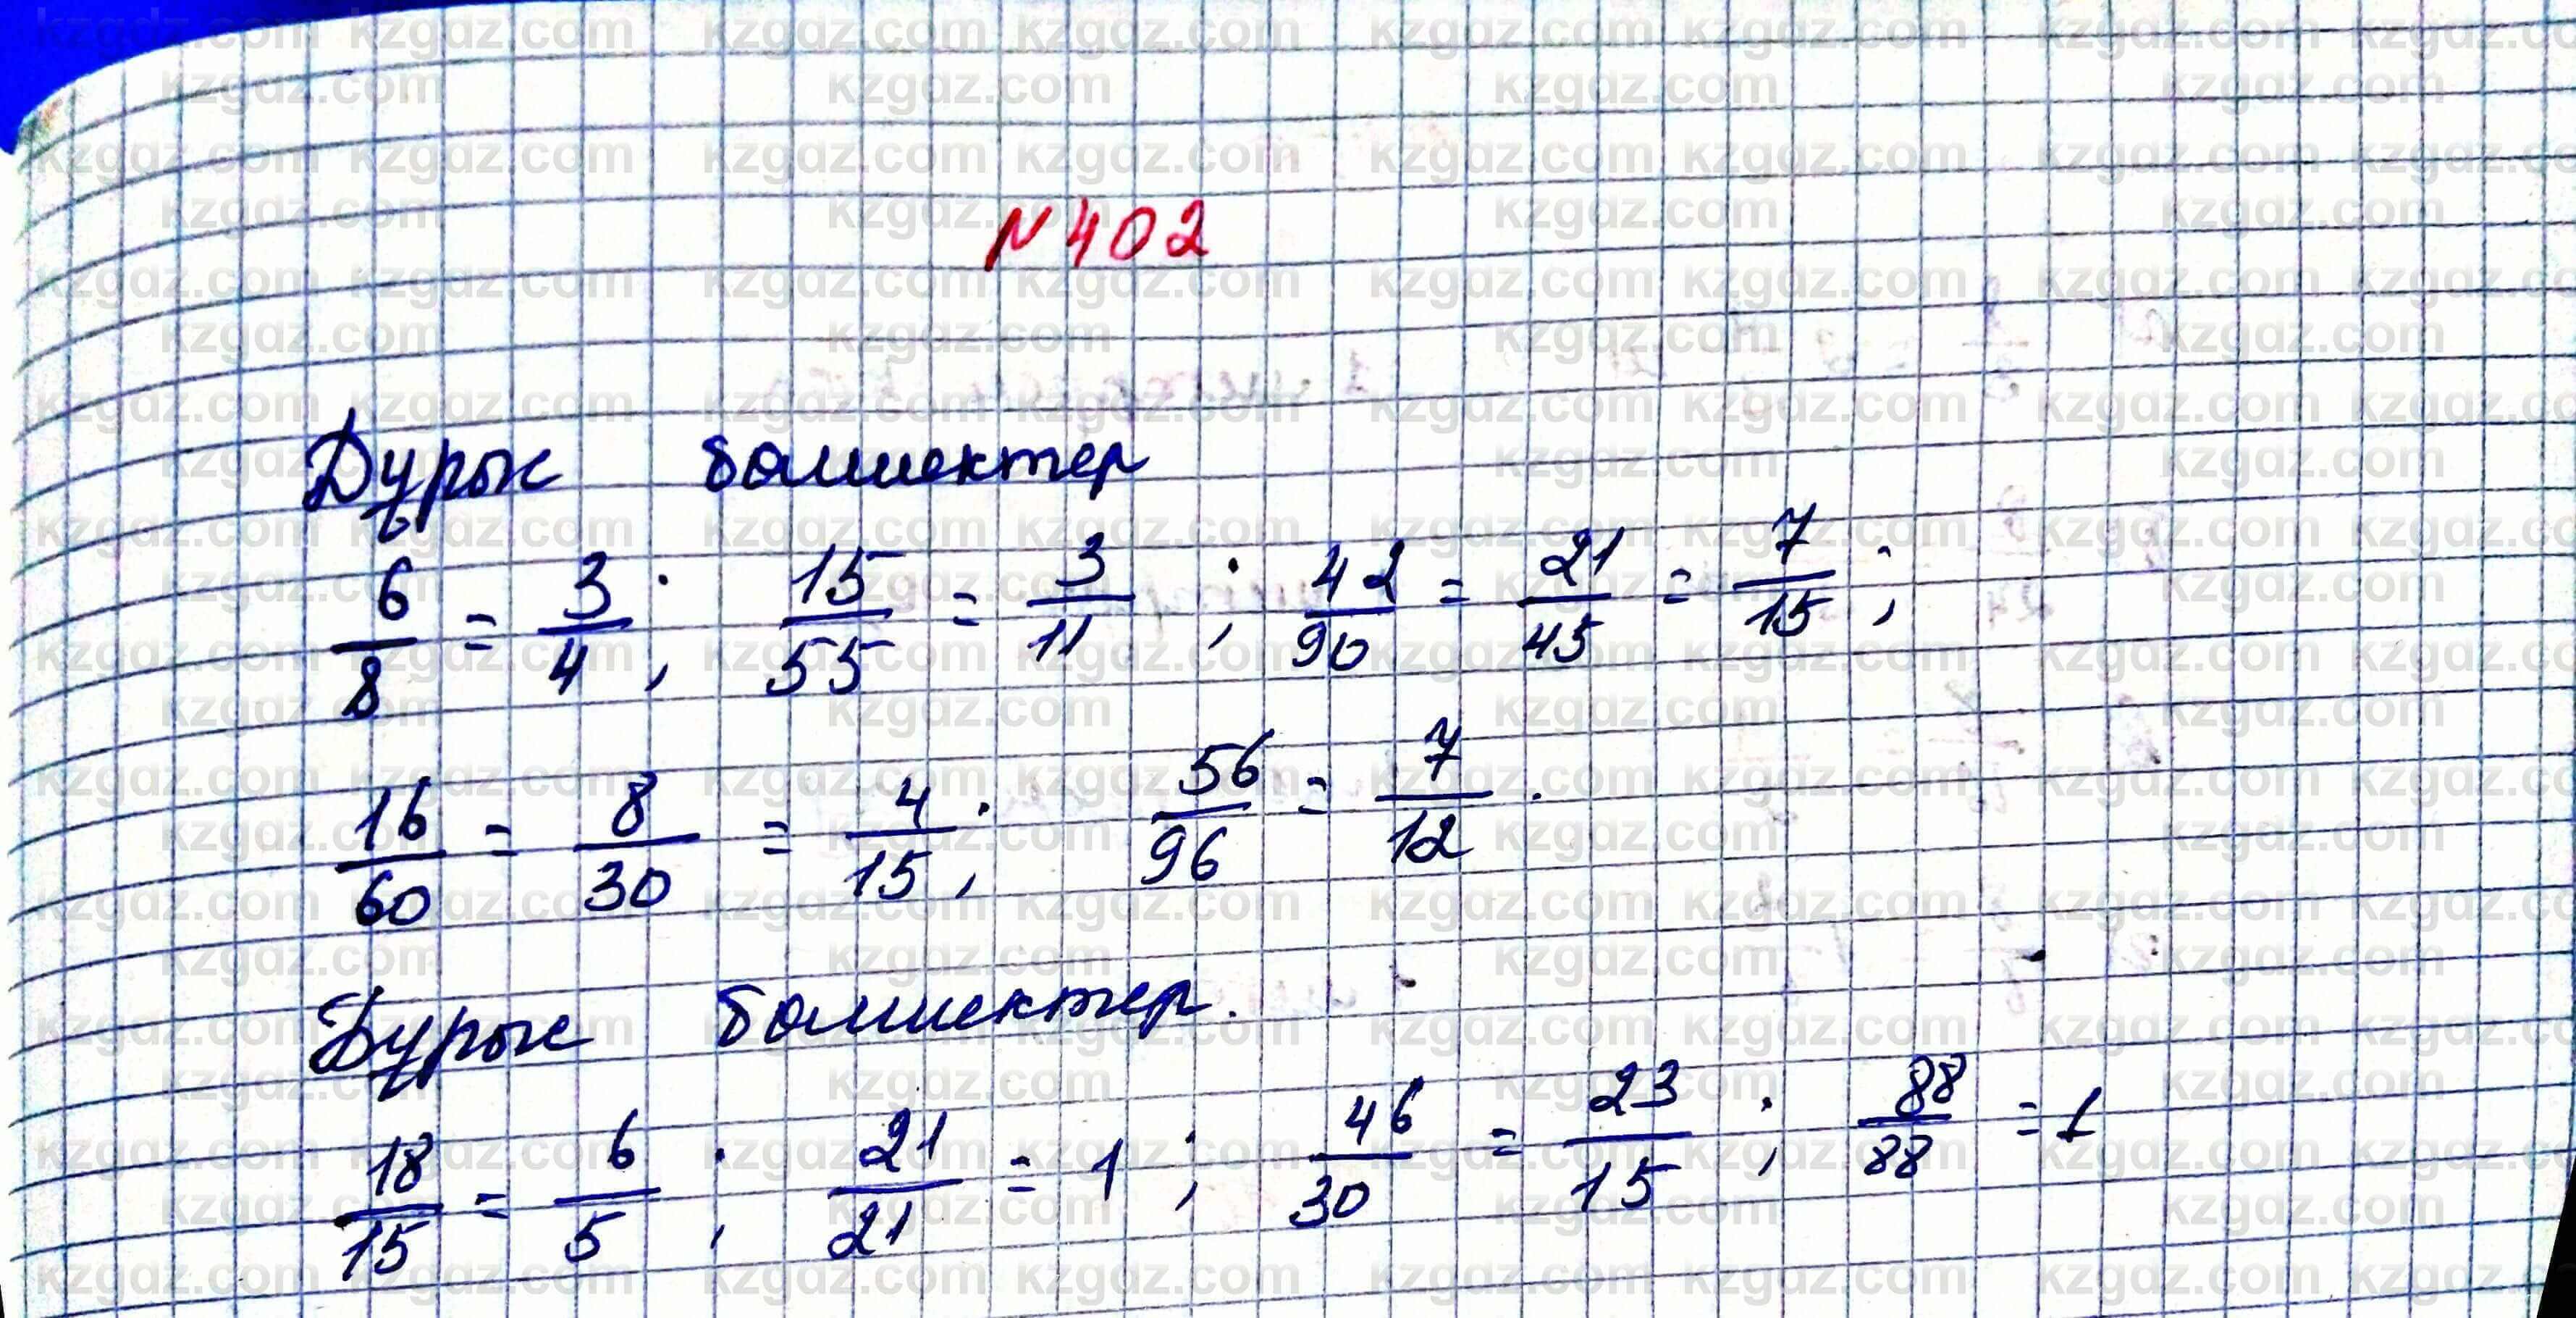 N 402
Дұрыс бөлшектер
6/8 = 3/4; 15/55 = 3/11; 42/90 = 21/45 = 7/15;
16/60 = 8/30 = 4/15; 56/96 = 7/12.
Дұрыс бөлшектер.
18/15 = 6/5; 21/21 = 1; 46/30 = 23/15; 88/88 = 1
kzgdz.com